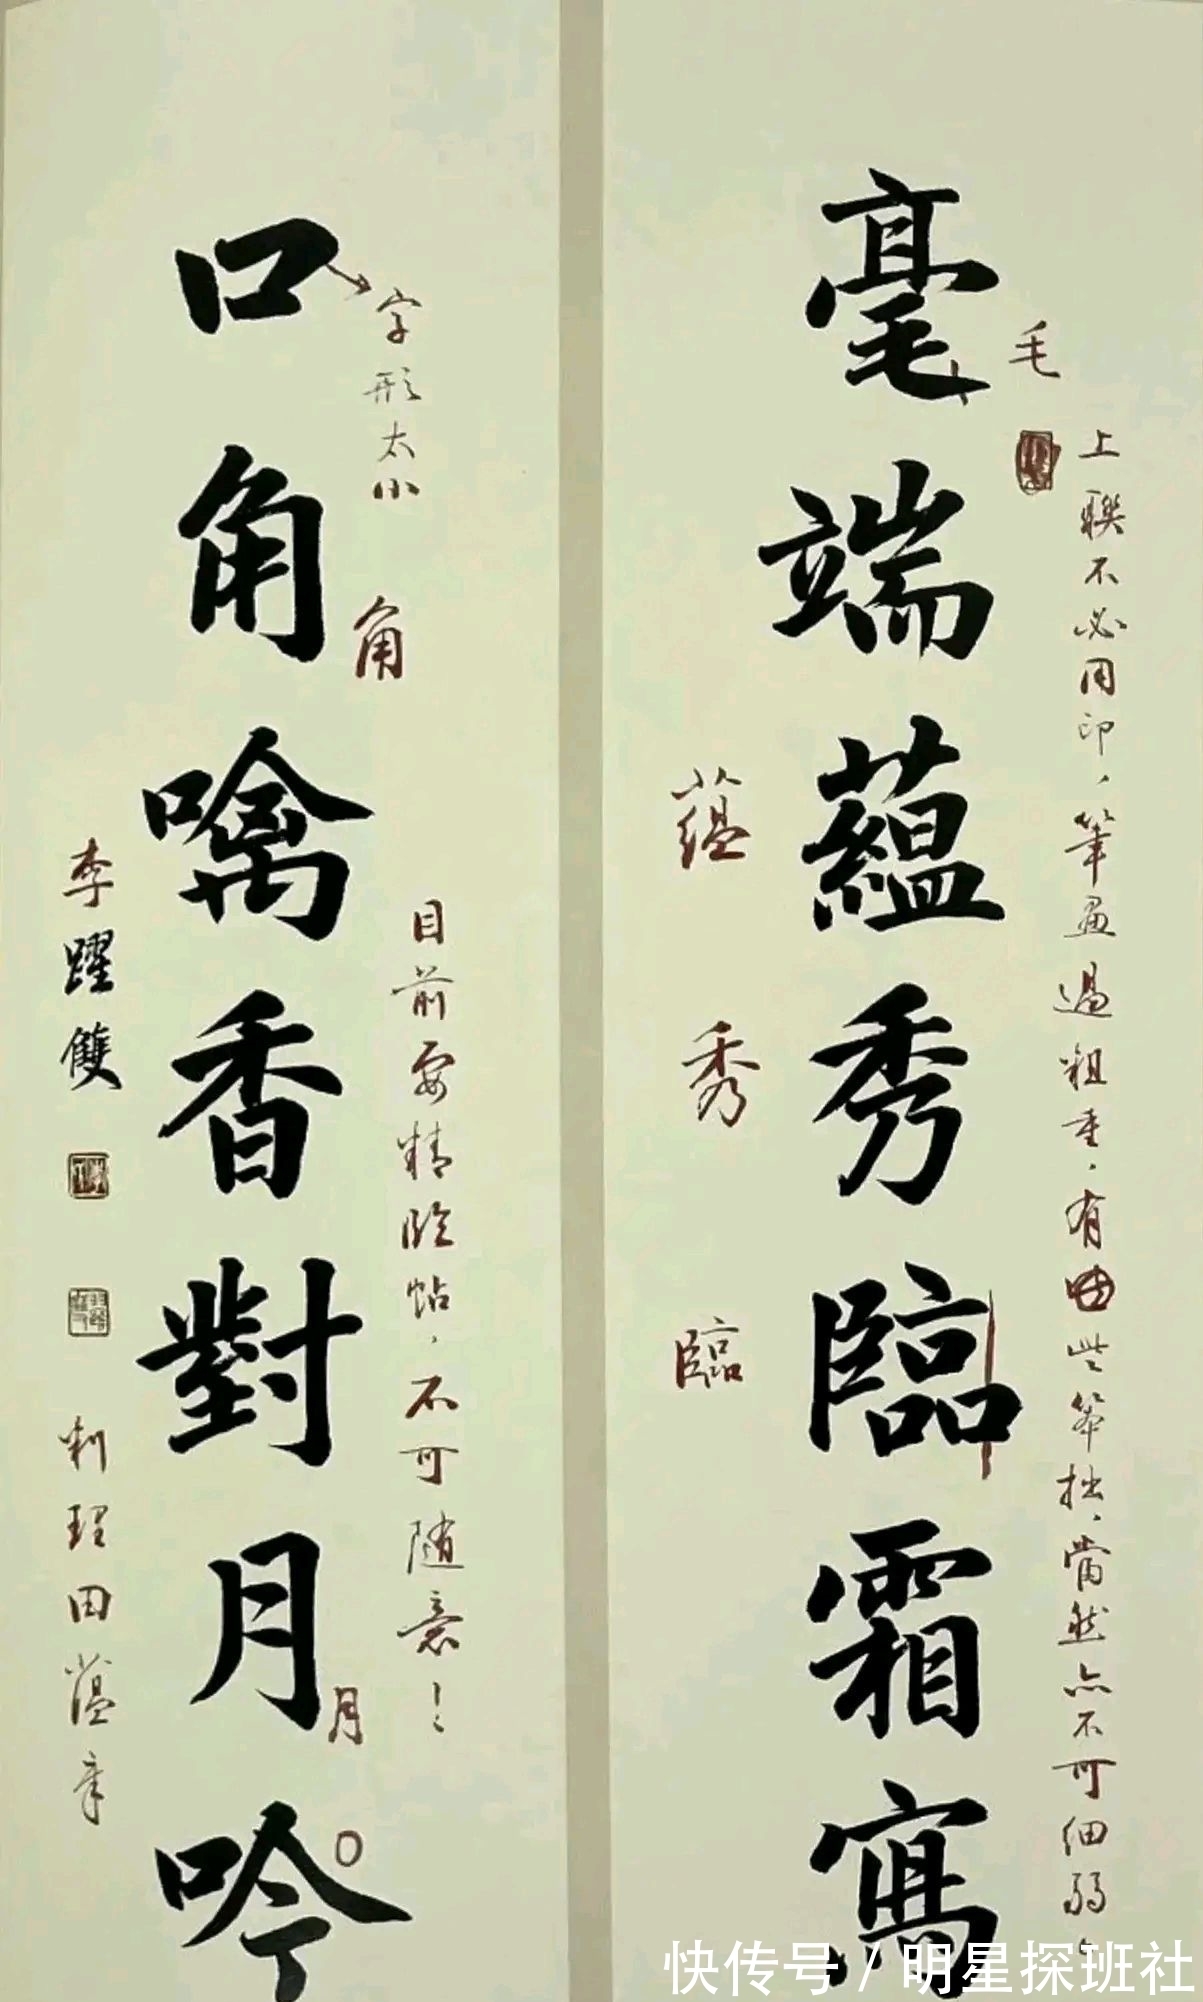 毫端蘊秀臨霜寫
毛
上聯不必用印，筆畫過粗重，有些笨拙，當然亦不可細弱。
蘊
秀
臨
口角噙香對月吟
字形太小
角
目前要精臨帖，不可随意！
月
李躍雙
田蘊章
快传号 / 明星探班社